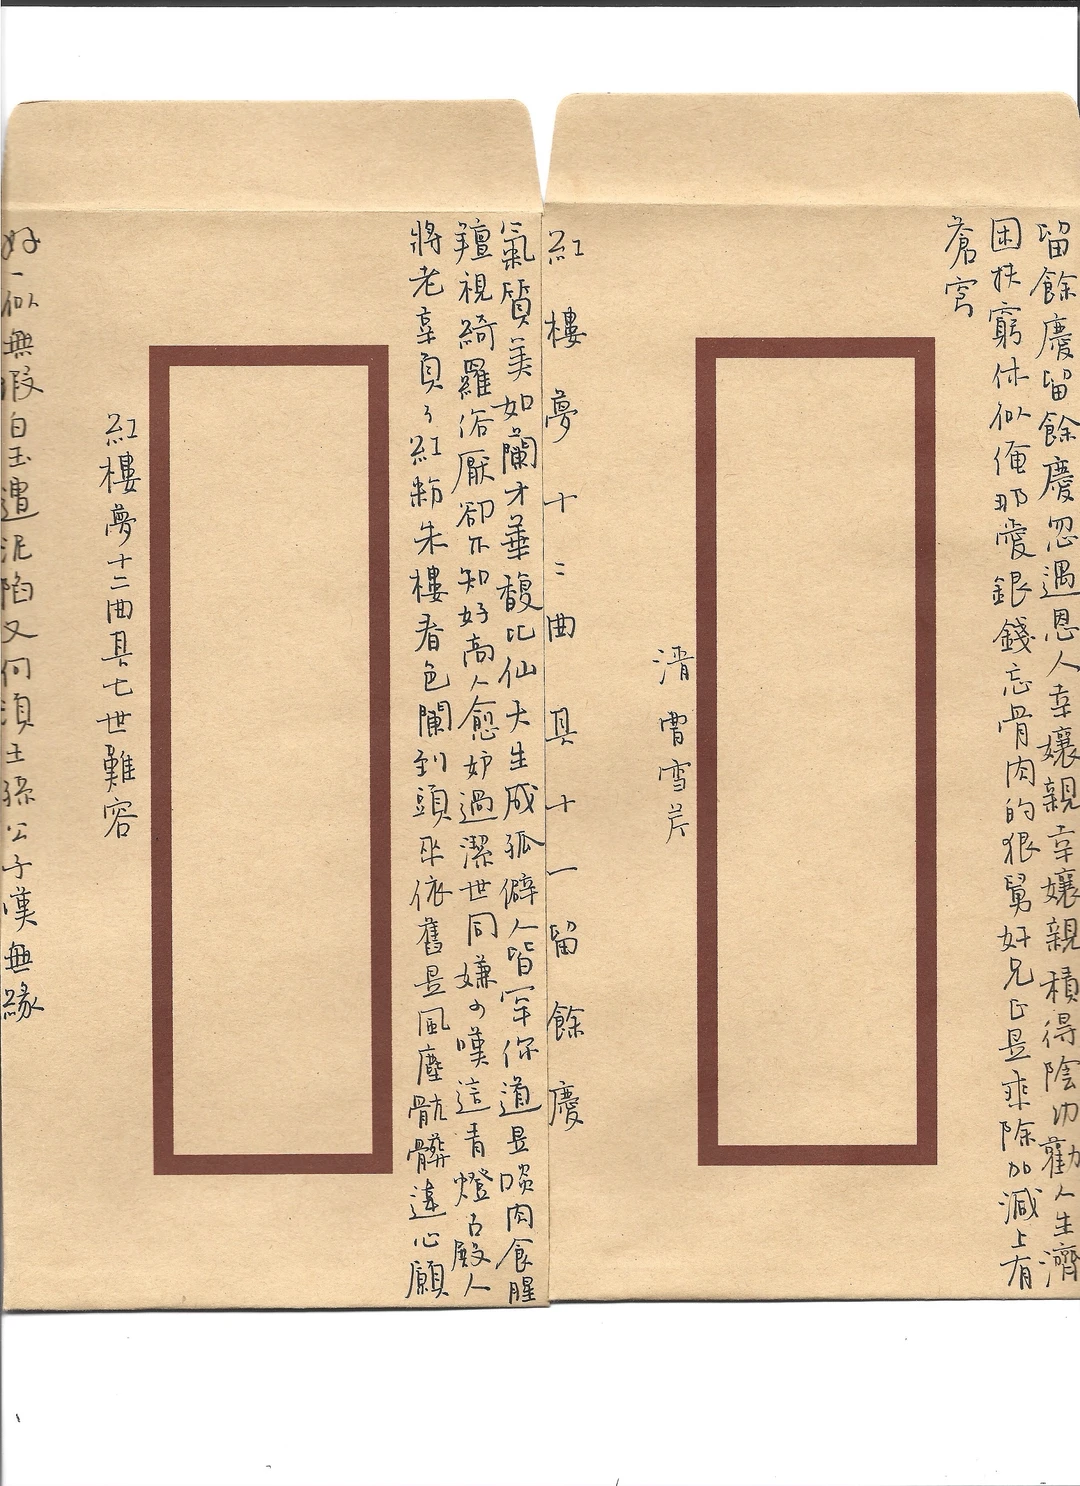 留餘慶留餘慶忽遇恩人幸孃親幸孃親積得陰功勸人生濟
困扶窮休似俺那愛銀錢忘骨肉的狠舅奸兄正是乘除加減上有
蒼穹
清 曹雪芹
紅樓夢十二曲其十一留餘慶
氣質美如蘭才華馥比仙天生成孤僻人皆罕你道是啖肉食腥
羶視綺羅俗厭卻不知好高人愈妒過潔世同嫌可嘆這青燈古殿人
將老辜負了紅粉朱樓春色闌到頭來依舊是風塵骯髒違心願
紅樓夢十二曲其七世難容
好一似無瑕白玉遭泥陷又何須王孫公子嘆無緣